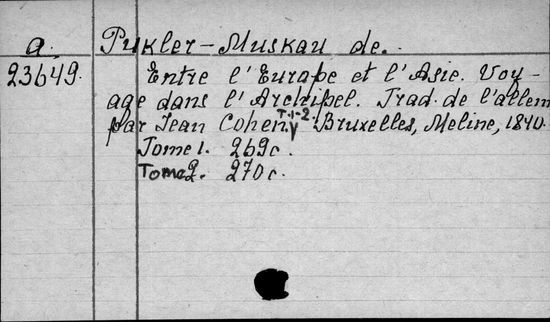 a. Pukler-Muskau de.
23649. Entre l'Europe et l'Asie. Voy-
age dans l'Archipel. Trad. de l'allem
par Jean Cohen. T.1-2. Bruxelles, Meline, 1840.
Tome 1. 269c.
Tome 2. 270c.